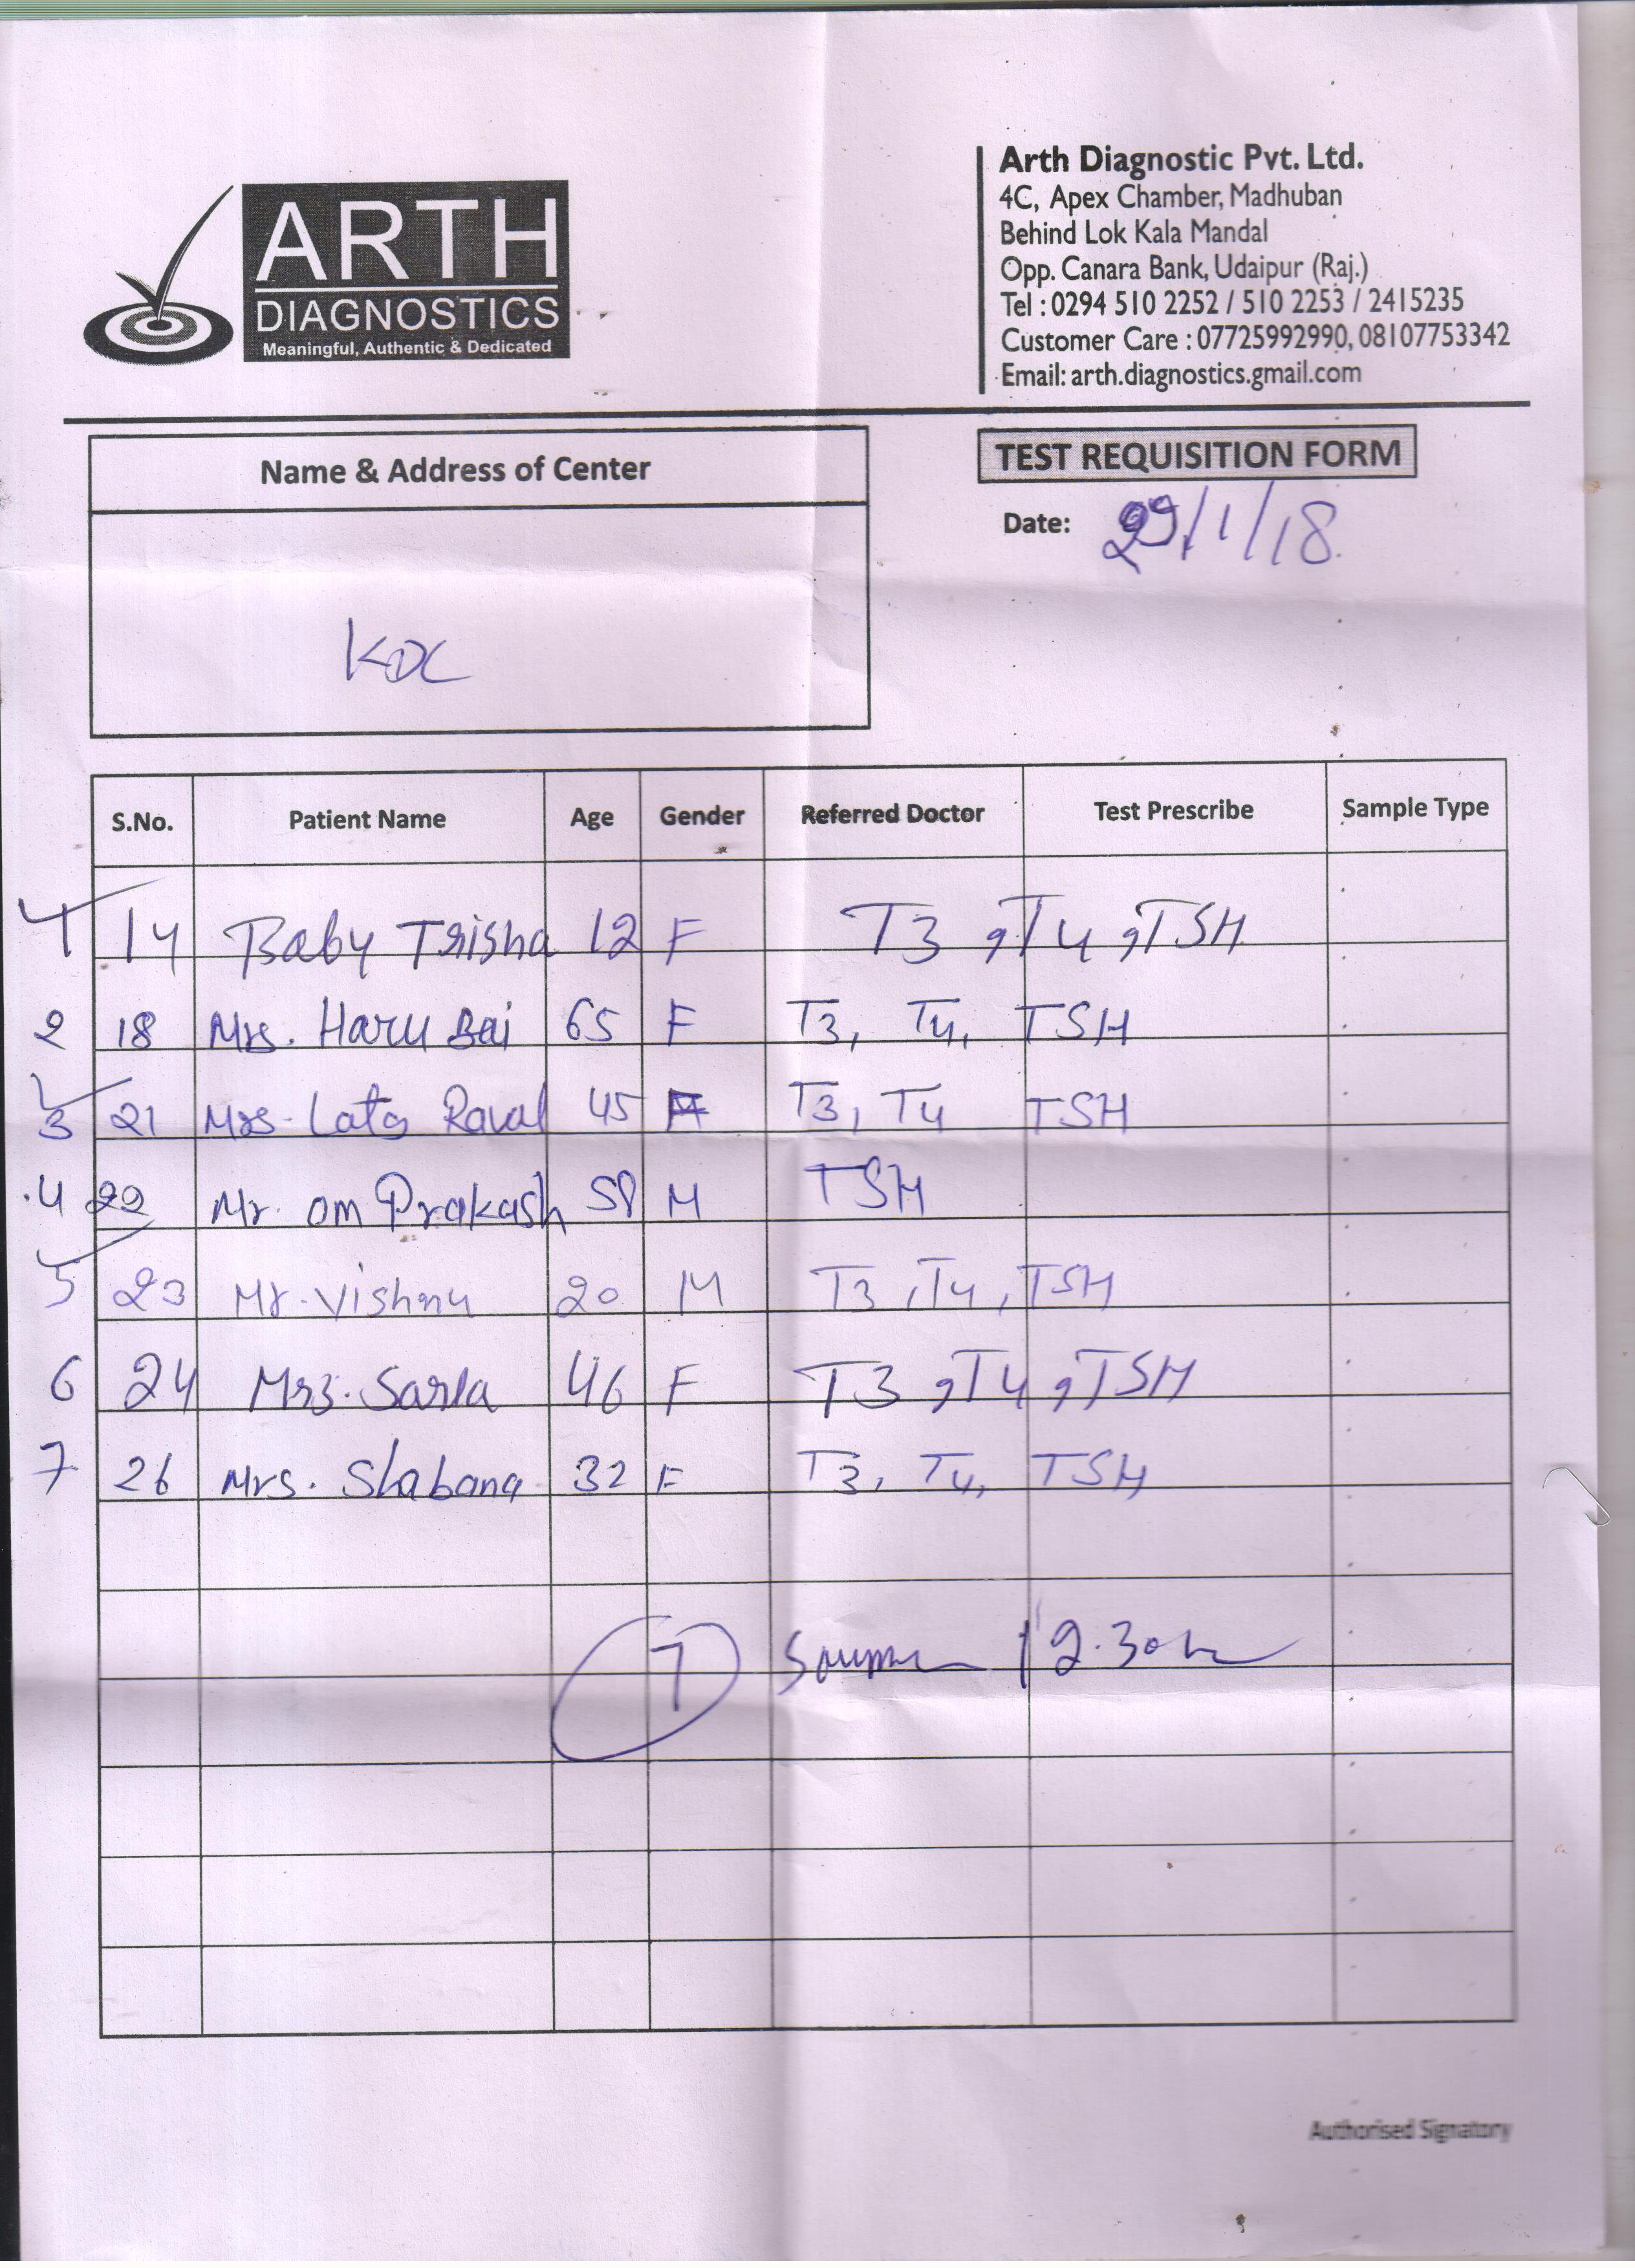 ARTH
DIAGNOSTICS
Meaningful, Authentic & Dedicated
Arth Diagnostic Pvt. Ltd.
4C, Apex Chamber, Madhuban
Behind Lok Kala Mandal
Opp. Canara Bank, Udaipur (Raj.)
Tel : 0294 510 2252 / 510 2253 / 2415235
Customer Care : 07725992990, 08107753342
Email: arth.diagnostics.gmail.com
Name & Address of Center
KDC
TEST REQUISITION FORM
Date: 29/1/18
S.No. Patient Name Age Gender Referred Doctor Test Prescribe Sample Type
1 14 Baby Trisha 12 F T3, T4, TSH
2 18 Mrs. Haru Bai 65 F T3, T4, TSH
3 21 Mrs. Lata Raval 45 F T3, T4 TSH
4 22 Mr. om Prakash 58 M TSH
5 23 Mr. Vishnu 20 M T3, T4, TSH
6 24 Mrs. Sarla 46 F T3, T4, TSH
7 26 Mrs. Shabana 32 F T3, T4, TSH
7 12.30
Authorised Signatory